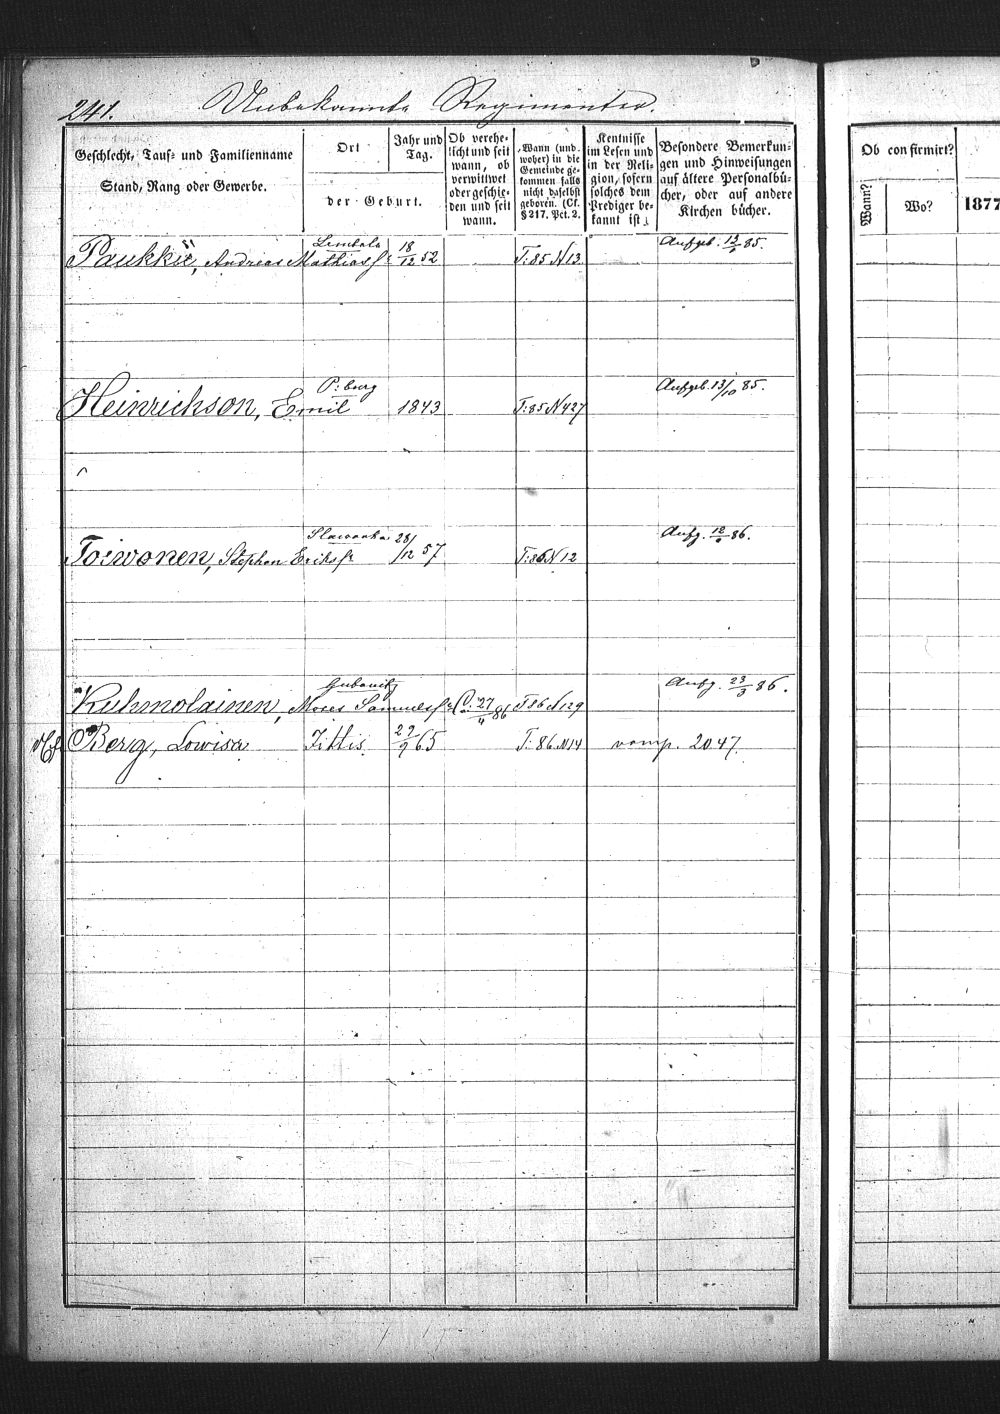 241. Unbekannte Regimenter.
Geschlecht, Tauf- und Familienname
Stand, Rang oder Gewerbe.
Ort
Jahr und Tag.
der Geburt.
Ob verehe-
licht und seit
wann, ob
verwittwet
oder geschie-
den und seit
wann.
Wann (und
woher) in die
Gemeinde ge-
kommen falls
nicht daselbst
geboren. (Cf.
§ 217. Pct. 2.
Kentnisse
im Lesen und
in der Reli-
gion, sofern
solches dem
Prediger be-
kannt ist.
Besondere Bemerkun-
gen und Hinweisungen
auf ältere Personalbü-
cher, oder auf andere
Kirchen bücher.
Ob confirmirt?
Wann?
Wo?
1877
Lembala 18/12 52 Aufgeb. 13/ 85.
Paukku, Andreas Mathias f. T: 85 N 13.
P: burg Aufgeb. 13/10 85.
Heinrichson, Emil 1843 T: 85 N 427
28/12 57 Aufg. 12/ 86.
Toiwonen, Stephan Eriks f. T: 86 N 12
Gubanitz Aufg. 23/3 86.
Kuhmolainen, Moses Samuels f. C. 27/4 86 T 86 N 129
Berg, Lowisa Tittis 29/9 65 T: 86 N 14 2047.